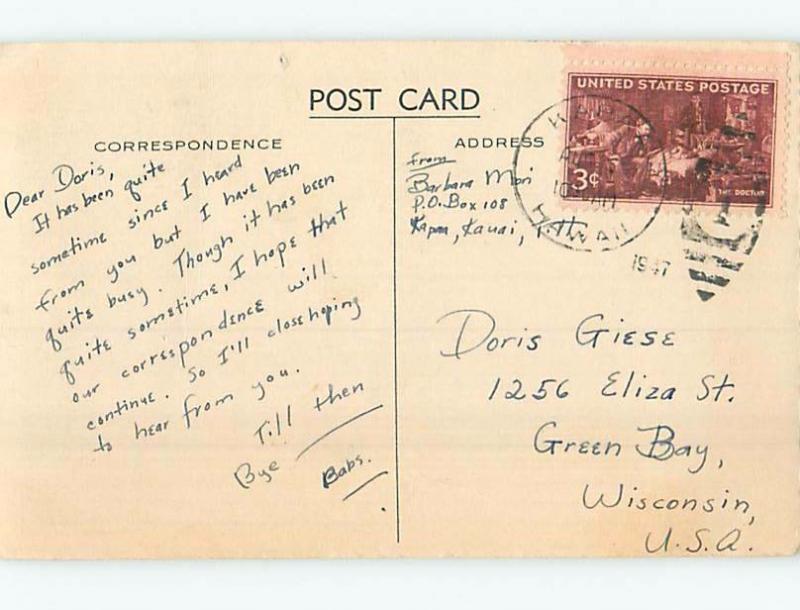 POST CARD
CORRESPONDENCE
Dear Doris,
It has been quite
sometime since I heard
from you but I have been
quite busy. Though it has been
quite sometime, I hope that
our correspondence will
continue. So I'll close hoping
to hear from you.
Till then
Bye
Babs.
ADDRESS
From
Barbara Mori
P.O. Box 108
Kapaa, Kauai, T.H.
UNITED STATES POSTAGE
3¢
THE DOCTOR
HAWAII
1947
Doris Giese
1256 Eliza St.
Green Bay,
Wisconsin,
U.S.A.